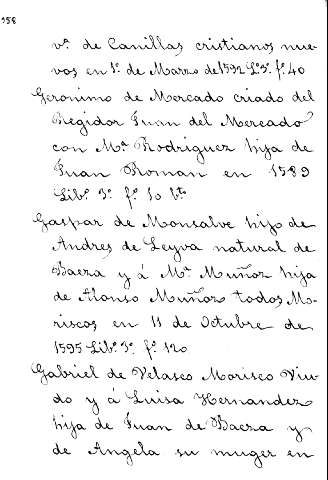 158
vº de Canillas cristianos nue-
vos en 1º de Marzo de 1592 Lº 3º fº 40
Geronimo de Mercado criado del
Regidor Juan del Mercado
con Mª Rodriguez hija de
Juan Roman en 1589
Libº 3º fº 10 bto
Gaspar de Monsalve hijo de
Andres de Leyva natural de
Baeza y á Mª Muñoz hija
de Alonso Muñoz todos Mo-
riscos en 11 de Octubre de
1595 Libº 3º fº 120
Gabriel de Velasco Morisco Viu-
do y á Luisa Hernandez
hija de Juan de Baeza y
de Angela su muger en